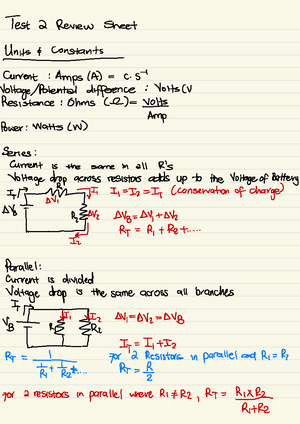 Test 2 Review Sheet
Units & Constants
Current : Amps (A) = C·s⁻¹
Voltage/Potential difference : Volts (V
Resistance : Ohms (Ω) = Volts
Amp
Power: Watts (W)
Series:
Current is the same in all R's
Voltage drop across resistors adds up to the Voltage of Battery
I₁ = I₂ = I_T (conservation of charge)
I_T R₁ I₁
ΔV₁
ΔV_B R₂ ΔV₂
I₂
ΔV_B = ΔV₁ + ΔV₂
R_T = R₁ + R₂ + .....
Parallel:
Current is divided
Voltage drop is the same across all branches
I_T
V_B I₁ I₂
R₁ R₂
ΔV₁ = ΔV₂ = ΔV_B
I_T = I₁ + I₂
R_T = 1
1/R₁ + 1/R₂ + ....
for 2 Resistors in parallel and R₁ = R₂
R_T = R/2
for 2 resistors in parallel where R₁ ≠ R₂, R_T = R₁ x R₂
R₁ + R₂